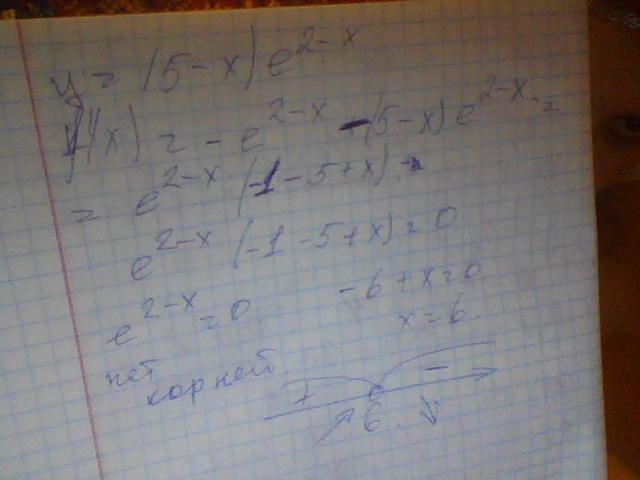 y = (5-x)e^{2-x}
y'(x) = -e^{2-x} -(5-x)e^{2-x} =
= e^{2-x} (-1-5+x)
e^{2-x} (-1-5+x)=0
e^{2-x}=0 -6+x=0
нет корней x=6
+ 6 -